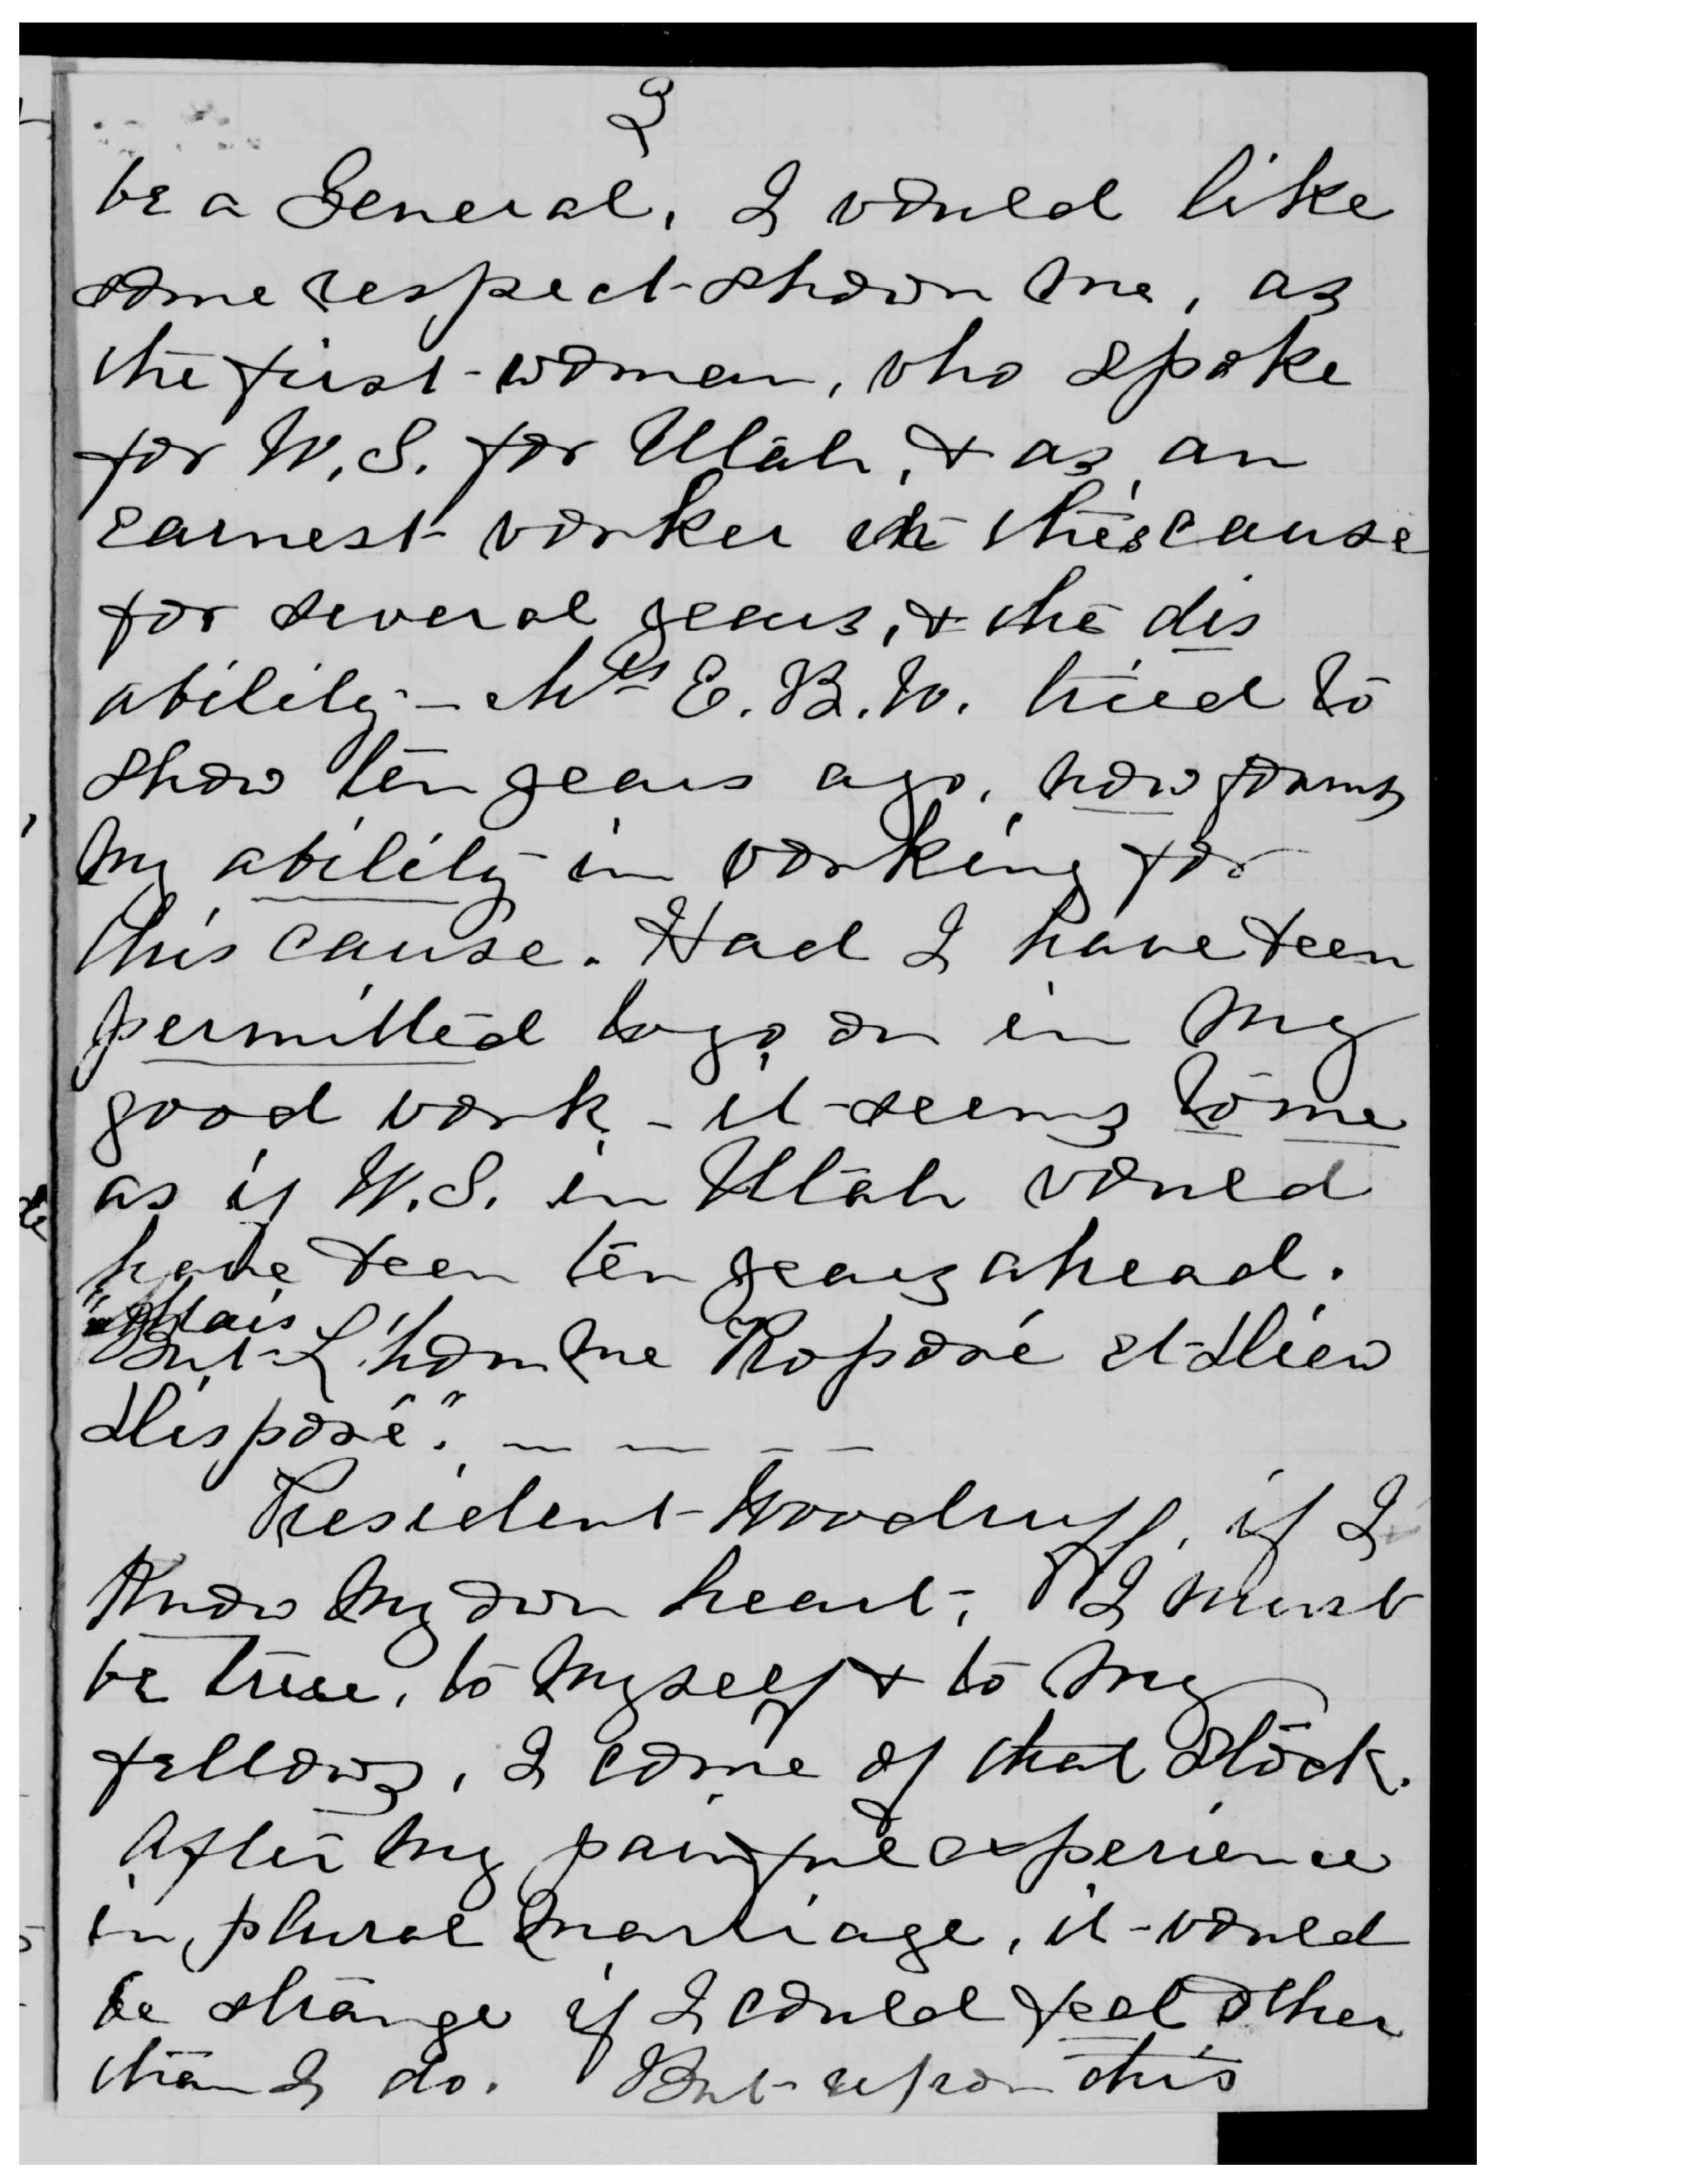 3
be a General, I would like
some respect shown me, as
the first women, who spoke
for W. S. for Utah, & as an
earnest worker in this cause
for several years, & the dis
ability – Mrs E. B. W. tried to
show ten years ago, now forms
my ability in working for
this cause. Had I have been
permitted to go on in my
good work – it seems to me
as if W. S. in Utah would
have been ten years ahead.
"Mais
But L'homme Roposé et Dieu
Disposé". – – – –
President Woodruff, if I
Know my own heart, I must
be true, to myself & to my
fellows, I come of that stock.
After my painful experience
in plural marriage, it would
be strange if I could feel other
than I do. But upon this